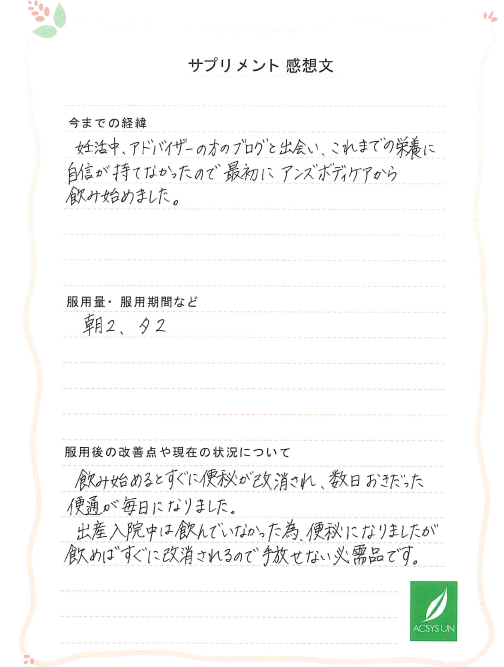 サプリメント 感想文
今までの経緯
妊活中、アドバイザーの方のブログと出会い、これまでの栄養に
自信が持てなかったので最初に アンズボディケアから
飲み始めました。
服用量・服用期間など
朝2、夕2
服用後の改善点や現在の状況について
飲み始めるとすぐに便秘が改消され、数日おきだった
便通が毎日になりました。
出産入院中は飲んでいなかった為、便秘になりましたが
飲めばすぐに改消されるので手放せない必需品です。
ACSYS UN